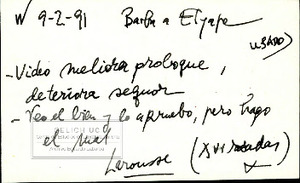 W 9-2-91 Barba a Elyape
USADO
- Video meliora proboque,
deteriora sequor
- Veo el bien y lo apruebo, pero hago
el mal
Larousse (XVI rosadas)